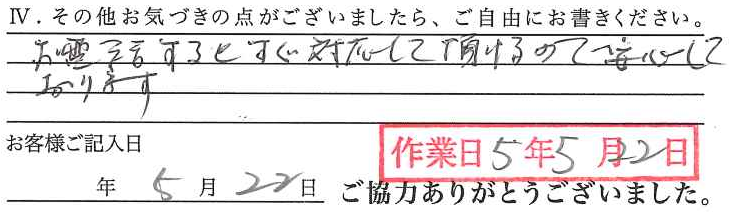 Ⅳ．その他お気づきの点がございましたら、ご自由にお書きください。
お電話するとすぐ対応して頂けるので安心して
おります
お客様ご記入日
作業日 5年5月22日
年 5月22日 ご協力ありがとうございました。